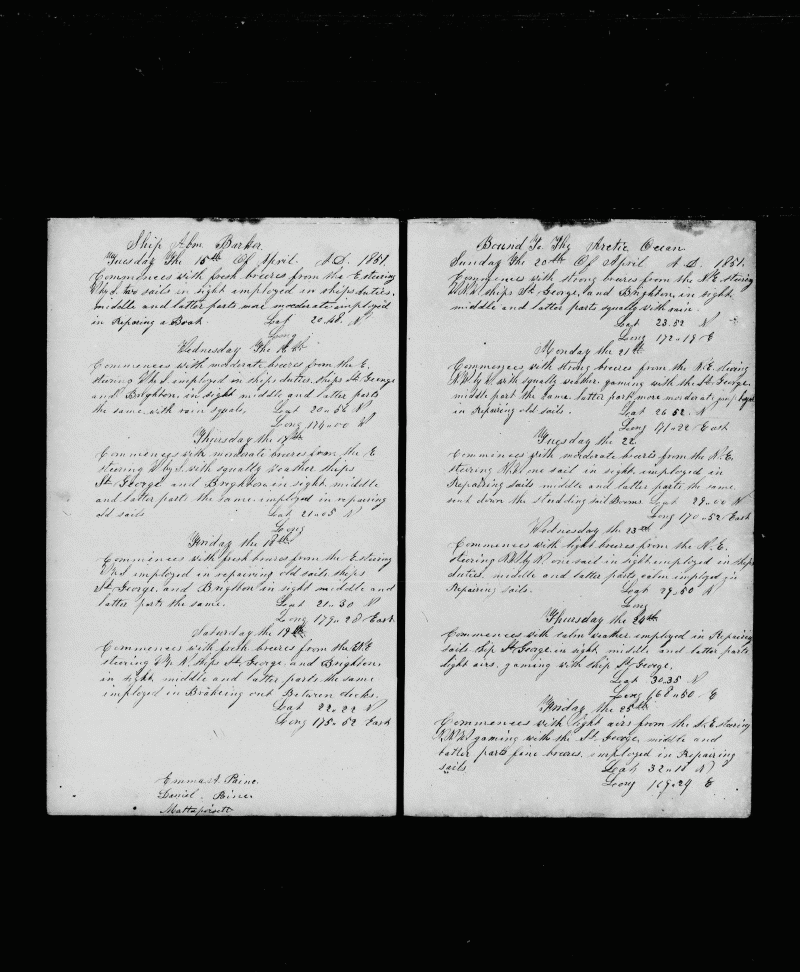 Ship Abm. Barker.
Tuesday The 15th Of April. A.D. 1851.
Commences with fresh breezes from the E. stering
W by S. two sails in sight employed in ships duties.
middle and latter parts more moderate imployed
in Reparing a Boat. Lat 20.48. N
Long
Wednesday The 16th
Commences with moderate breezes from the E.
stering W by S. employed in ships duties, ships St. George
and Brighton, in sight middle and latter parts
the same with rain squals, Lat 20.52 N
Long 174.00 W
Thursday the 17th
Commences with moderate breezes from the E
stering W by S. with squally weather ships
St George and Brighton in sight middle
and latter parts the same. imployed in repairing
old sails Lat 21.05 N
Long
Friday the 18th
Commences with fresh breezes from the E. stering
W by S imployed in repairing old sails ships
St. George, and Brighton in sight middle and
latter parts the same. Lat 21.30 N
Long 179.28 East
Saturday the 19th
Commences with fresh breezes from the
stering N. ships St, George and Brighton
in sight middle and latter parts the same
imployed in Brakeing out Between decks.
Lat 22.22 N
Long 175.52 East
Emma A. Paine.
Daniel.
Mattapoisett
Bound To The Arctic Ocean
Sunday The 20th Of April A.D. 1851.
Commences with strong breezes from the N.E. stering
ships St. George, and Brighton, in sight.
middle and latter parts squally with rain.
Lat 23.52 N
Long 172.19 E
Monday the 21th
Commences with strong breezes from the N.E. stering
N.W. by W. with squally weather. gaming with the St. George.
middle part the same. latter part more moderate
in Repairing old sails. Lat 26 52 N
Long 171.22 East
Tuesday the 22
Commences with moderate breezes from the N.E.
stering N.W. one sail in sight, employed in
Repairing sails middle and latter parts the same
sent down the studding sail Booms Lat 28.00 N
Long 170.52 East
Wednesday the 23rd
Commences with light breezes from the N.E.
stering one sail in sight. employed in ships
duties. middle and latter parts, calm imployed in
Repairing sails. Lat 29.50 N
Long
Thursday the 24th
Commences with calm weather. employed in Repairing
sails. ship St. George in sight middle and latter parts
light airs. gaming with ship St. George.
Lat 30.35 N
Long 168.50 E
Friday the 25th
Commences with light airs from the S.E. stering
gaming with the St. George, middle and
latter parts fine breezes. imployed in Repairing
sails Lat 32.11 N
Long 169.29 E